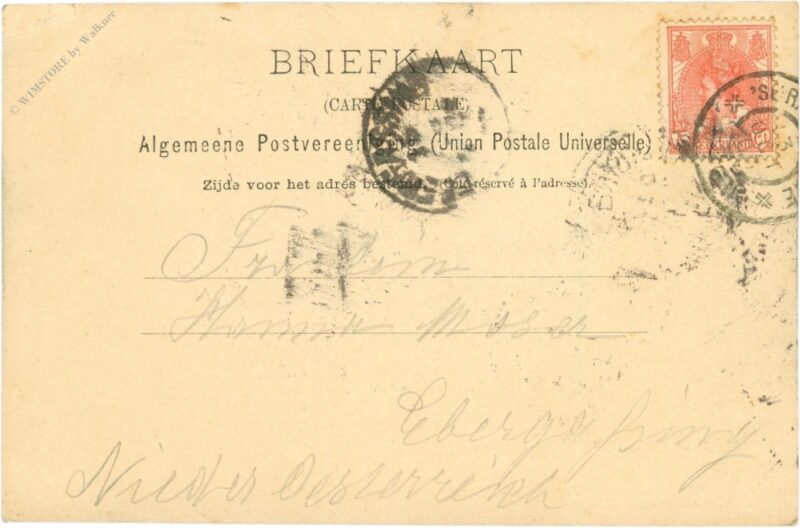 © WIMSTORE by Walkner
BRIEFKAART
(CARTE POSTALE)
Algemeene Postvereeniging (Union Postale Universelle)
Zijde voor het adres bestemd. (Côté réservé à l'adresse).
Fräulein
Hanna Moser
Ebergassing
Nieder Oesterreich